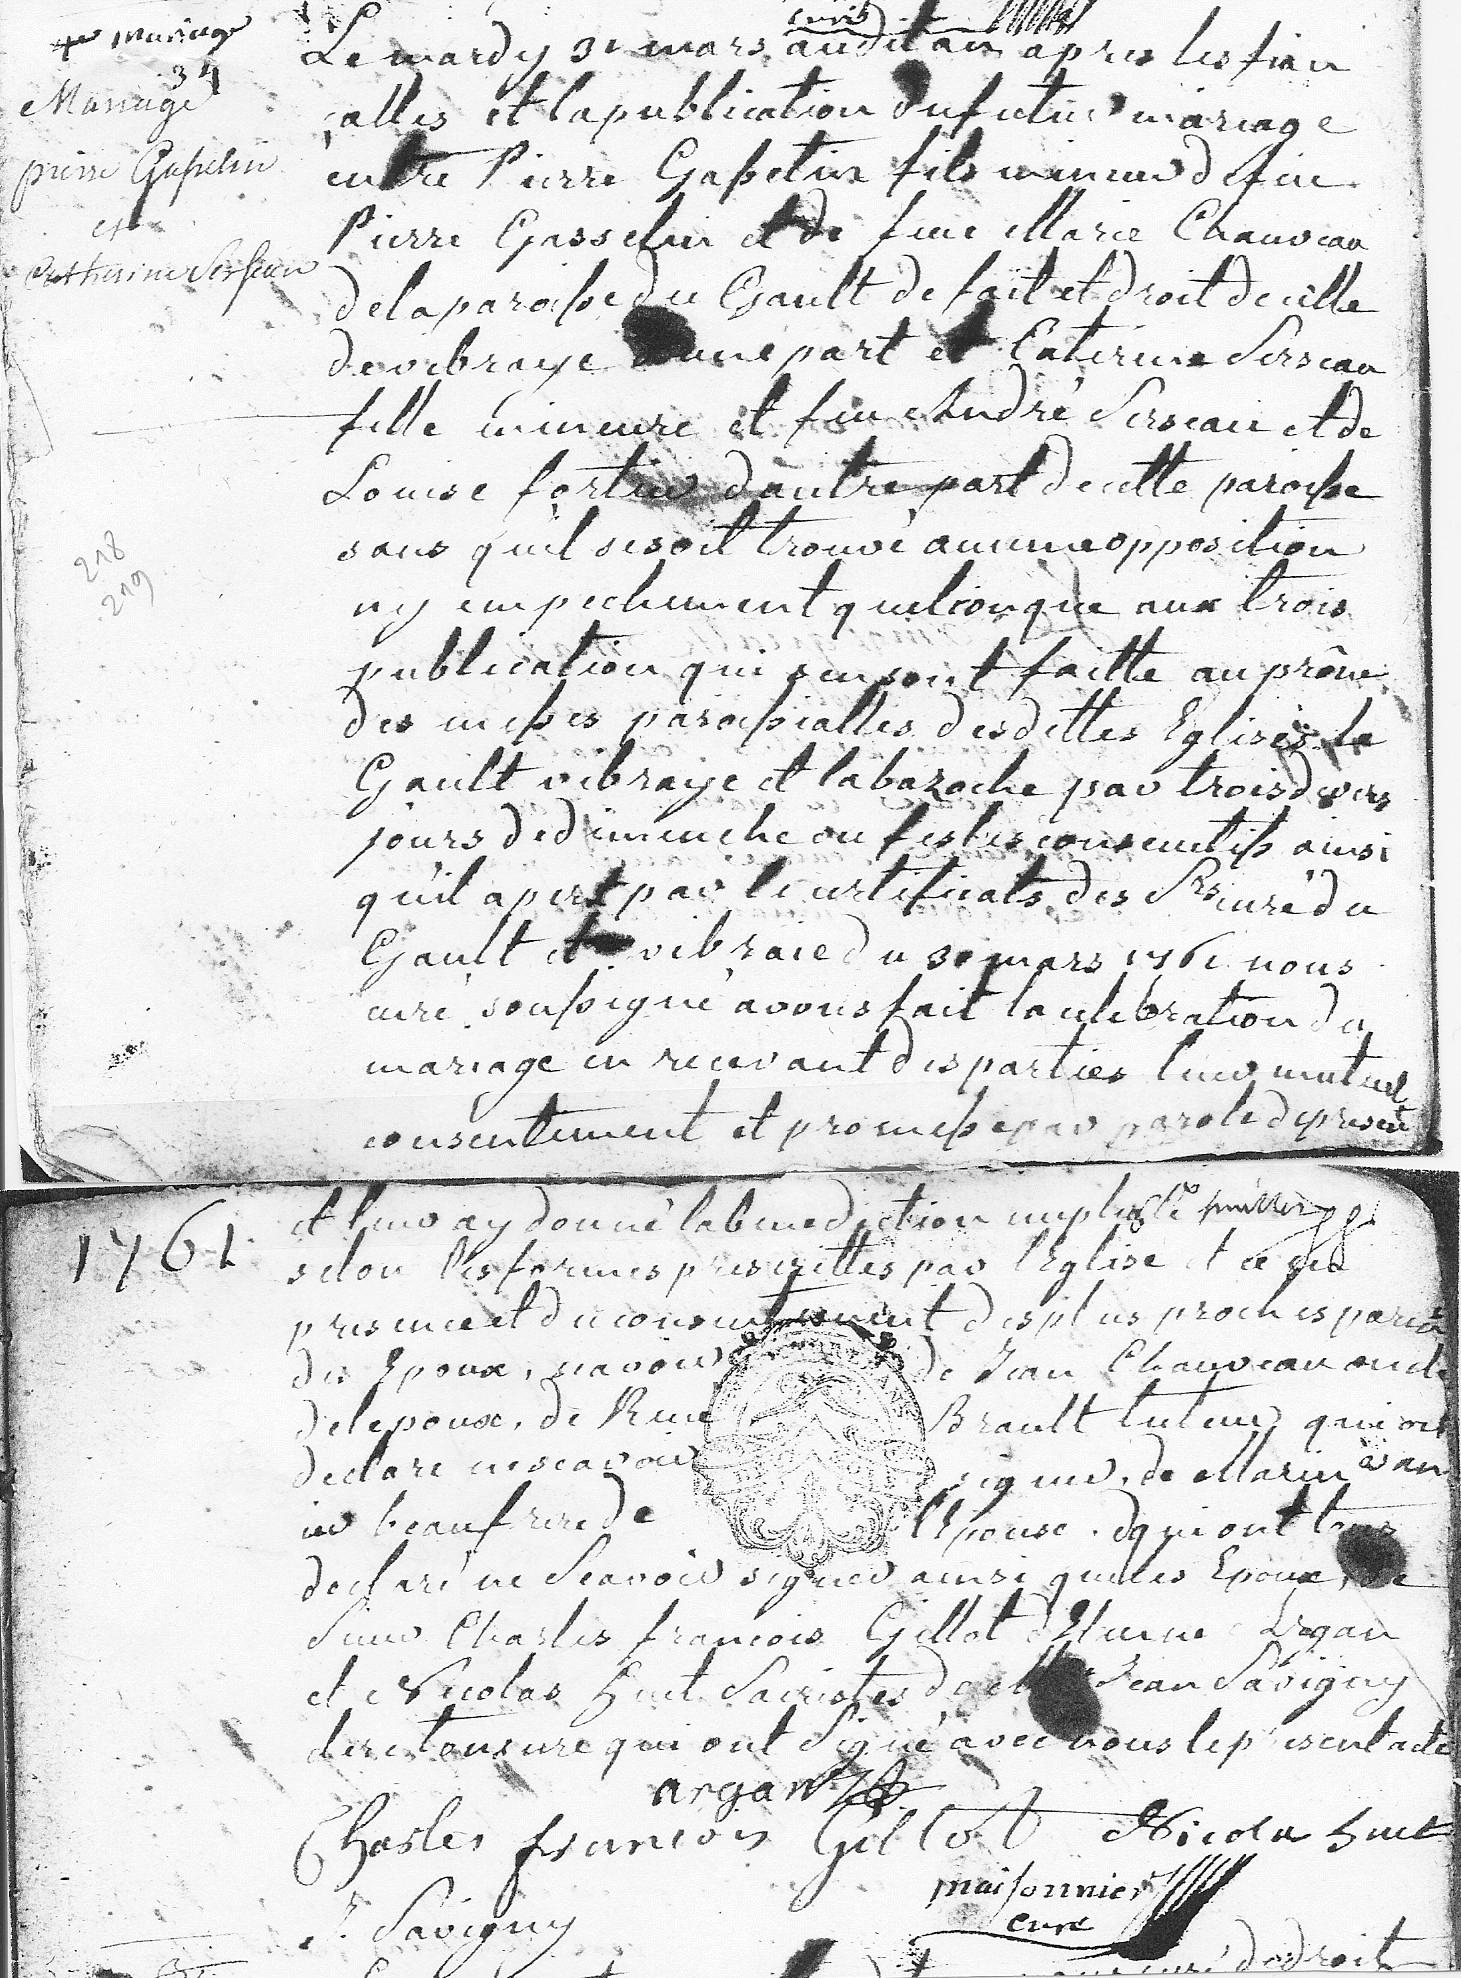 curé
4e mariage
34
Mariage
pierre Gasselin
et
Catherine Serseau
Le mardy 31 mars audit an apres les fian
calles et la publication du futur mariage
entre Pierre Gasselin fils mineur de feu
Pierre Gasselin et de feue Marie Chauveau
de la paroisse du Gault de fait et droit de celle
de vibraye d'une part et Caterine Serseau
fille mineure et feu André Serseau et de
Louise fortier d'autre part de cette paroisse
sans qu'il se soit trouvé aucune opposition
ny empechement quelconque aux trois
publication qui s'en sont faitte au prône
des messes paroissialles desdittes Eglises le
Gault vibraye et la bazoche par trois divers
jours de dimenche ou festes consecutifs ainsi
qu'il apert par le certificats des Srs curé du
Gault et vibraie du 30 mars 1761 nous
curé soussigné avons fait la celebration du
mariage en recevant des parties leur mutuel
consentement et promesse par parole de present
218
219
1761
et leur ay donné la benediction nuptialle
selon les formes prescrittes par l'Eglise et ce en
presence et du consentement des plus proches paren
des Epoux, scavoir de Jean Chauveau oncle
de l'epoux, de René Brault tuteur qui ont
declaré ne scavoir signer, de Marin
beaufrere de l'Epouse. qui ont tous
declaré ne Scavoir signer ainsi que les Epoux, de
Sieur Charles francois Gillot Argan
et Nicolas huet Sacristes de Jean Savigny
clerc tonsuré qui ont Signé avec nous le present acte
argan
Charles francois Gillot Nicola huet
J. Savigny
maisonnier
curé
de droit